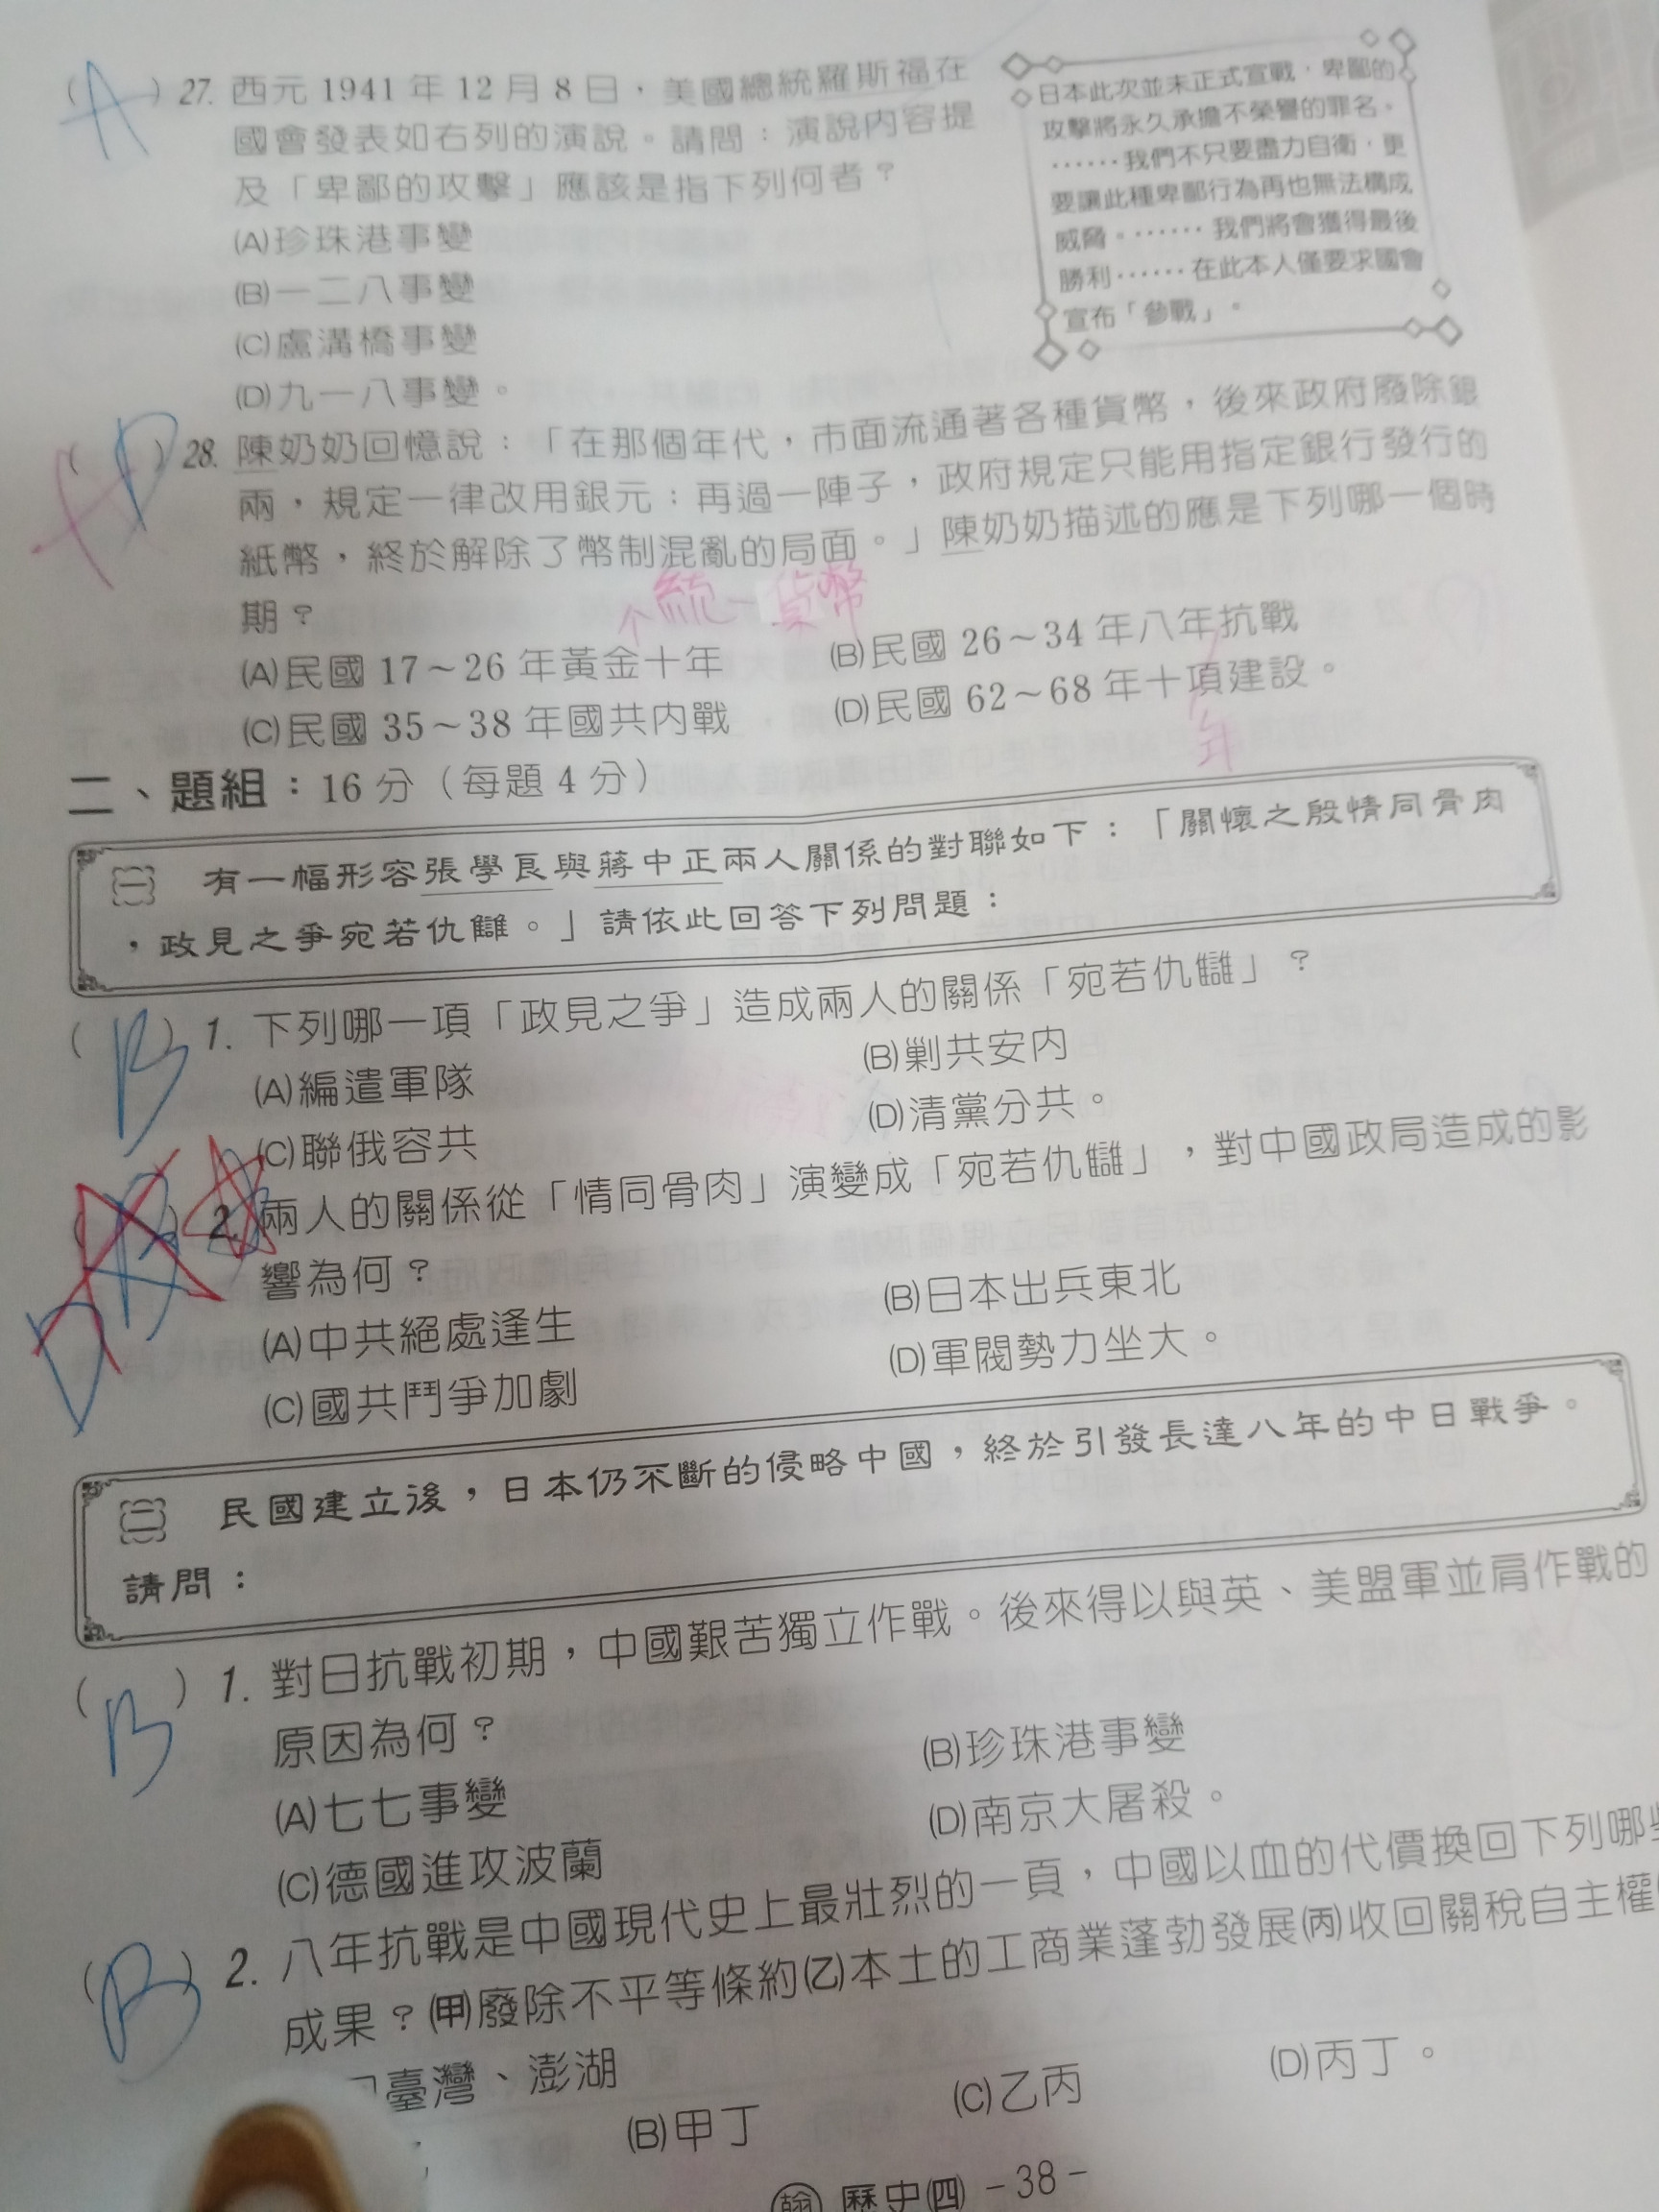 (A) 27. 西元 1941 年 12 月 8 日，美國總統羅斯福在
國會發表如右列的演說。請問：演說內容提
及「卑鄙的攻擊」應該是指下列何者？
(A)珍珠港事變
(B)一二八事變
(C)盧溝橋事變
(D)九一八事變。
日本此次並未正式宣戰，卑鄙的
攻擊將永久承擔不榮譽的罪名。
……我們不只要盡力自衛，更
要讓此種卑鄙行為再也無法構成
威脅。……我們將會獲得最後
勝利……在此本人僅要求國會
宣布「參戰」。
(D) 28. 陳奶奶回憶說：「在那個年代，市面流通著各種貨幣，後來政府廢除銀
兩，規定一律改用銀元；再過一陣子，政府規定只能用指定銀行發行的
紙幣，終於解除了幣制混亂的局面。」陳奶奶描述的應是下列哪一個時
期？
統一貨幣
(A)民國 17～26 年黃金十年 (B)民國 26～34 年八年抗戰
(C)民國 35～38 年國共內戰 (D)民國 62～68 年十項建設。
年
二、題組：16 分（每題 4 分）
㈠ 有一幅形容張學良與蔣中正兩人關係的對聯如下：「關懷之殷情同骨肉
，政見之爭宛若仇讎。」請依此回答下列問題：
(B) 1. 下列哪一項「政見之爭」造成兩人的關係「宛若仇讎」？
(A)編遣軍隊 (B)剿共安內
(C)聯俄容共 (D)清黨分共。
(B) 2. 兩人的關係從「情同骨肉」演變成「宛若仇讎」，對中國政局造成的影
D
響為何？
(A)中共絕處逢生 (B)日本出兵東北
(C)國共鬥爭加劇 (D)軍閥勢力坐大。
㈡ 民國建立後，日本仍不斷的侵略中國，終於引發長達八年的中日戰爭。
請問：
(B) 1. 對日抗戰初期，中國艱苦獨立作戰。後來得以與英、美盟軍並肩作戰的
原因為何？
(A)七七事變 (B)珍珠港事變
(C)德國進攻波蘭 (D)南京大屠殺。
(B) 2. 八年抗戰是中國現代史上最壯烈的一頁，中國以血的代價換回下列哪
成果？㈙廢除不平等條約㈚本土的工商業蓬勃發展㈛收回關稅自主權
臺灣、澎湖
(B)甲丁 (C)乙丙 (D)丙丁。
翰 歷史㈣ －38－